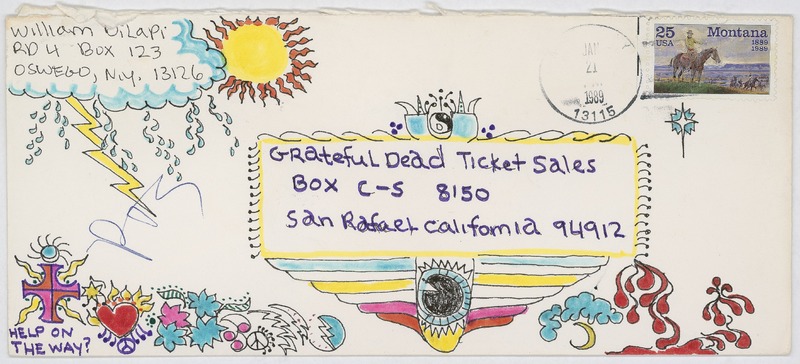 William DiLapi
RD 4 Box 123
OSWEGO, N.Y, 13126
JAN
21
1989
13115
25
USA
Montana
1889
1989
Grateful Dead Ticket Sales
Box C-S 8150
San Rafael California 94912
HELP ON
THE WAY?